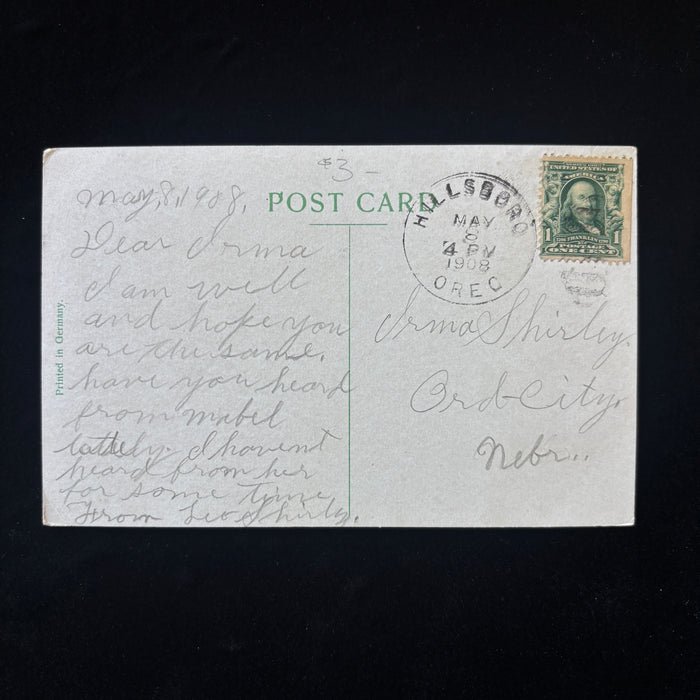 $3-
May, 8, 1908,
POST CARD
Dear Irma
I am well
and hope you
are the same.
have you heard
from Mabel
lately. I havent
heard from her
for some time
From Leo Shirly.
Printed in Germany.
HILLSBORO
MAY
8
4 PM
1908
OREG
UNITED STATES OF
AMERICA
FRANKLIN
1 1
POSTAGE
ONE CENT
Irma Shirley.
Ord City,
Nebr..